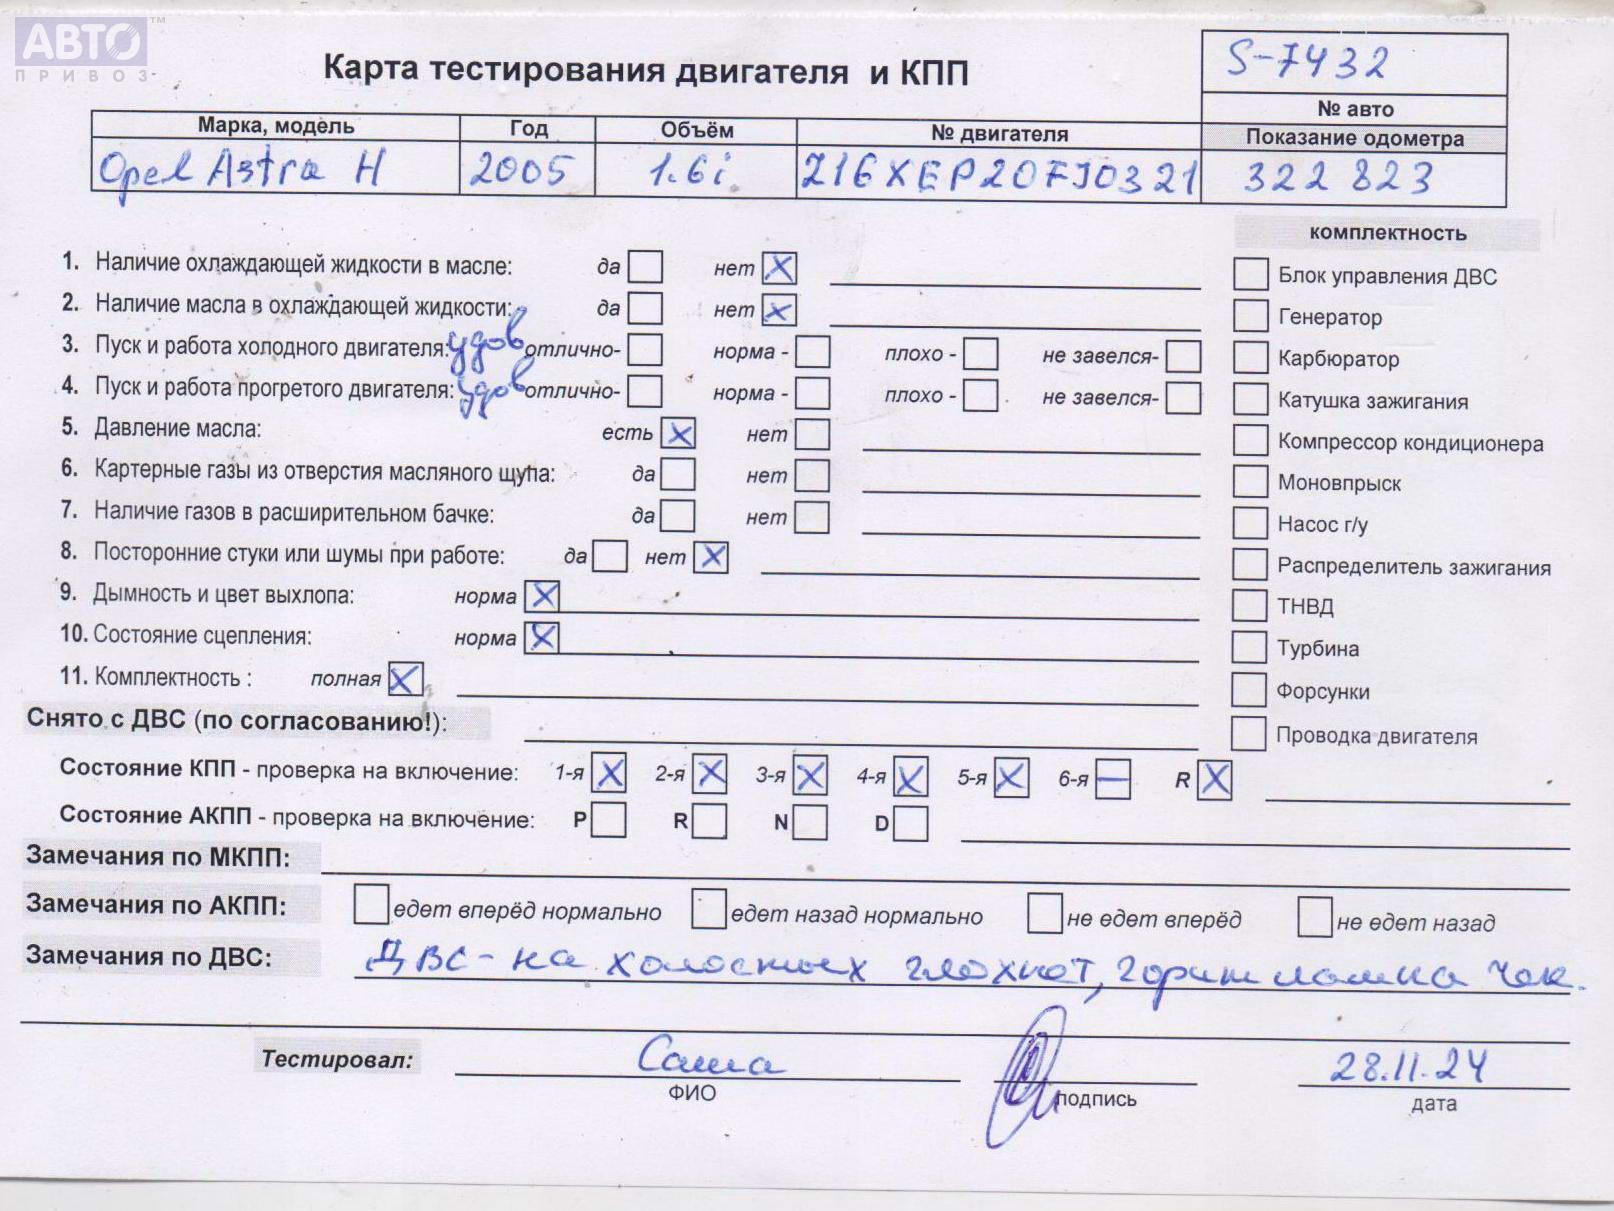 АВТО™
ПРИВОЗ
Карта тестирования двигателя и КПП
S-7432
№ авто
Марка, модель Год Объём № двигателя Показание одометра
Opel Astra H 2005 1.6i. Z16XEP20FJ0321 322 823
комплектность
1. Наличие охлаждающей жидкости в масле: да нет X
Блок управления ДВС
2. Наличие масла в охлаждающей жидкости: да нет X
Генератор
3. Пуск и работа холодного двигателя: удов отлично- норма - плохо - не завелся-
Карбюратор
4. Пуск и работа прогретого двигателя: удов отлично- норма - плохо - не завелся-
Катушка зажигания
5. Давление масла: есть X нет
Компрессор кондиционера
6. Картерные газы из отверстия масляного щупа: да нет
Моновпрыск
7. Наличие газов в расширительном бачке: да нет
Насос г/у
8. Посторонние стуки или шумы при работе: да нет X
Распределитель зажигания
9. Дымность и цвет выхлопа: норма X
ТНВД
10. Состояние сцепления: норма X
Турбина
11. Комплектность : полная X
Форсунки
Снято с ДВС (по согласованию!):
Проводка двигателя
Состояние КПП - проверка на включение: 1-я X 2-я X 3-я X 4-я X 5-я X 6-я — R X
Состояние АКПП - проверка на включение: P R N D
Замечания по МКПП:
Замечания по АКПП: едет вперёд нормально едет назад нормально не едет вперёд не едет назад
Замечания по ДВС: ДВС - на холостых глохнет, горит лампа чек.
Тестировал: Саша 28.11.24
ФИО подпись дата